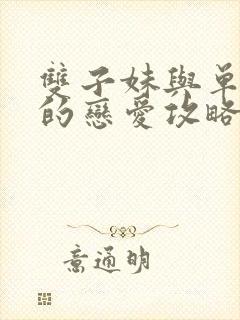 雙子妹與單
的戀愛攻略
意通明